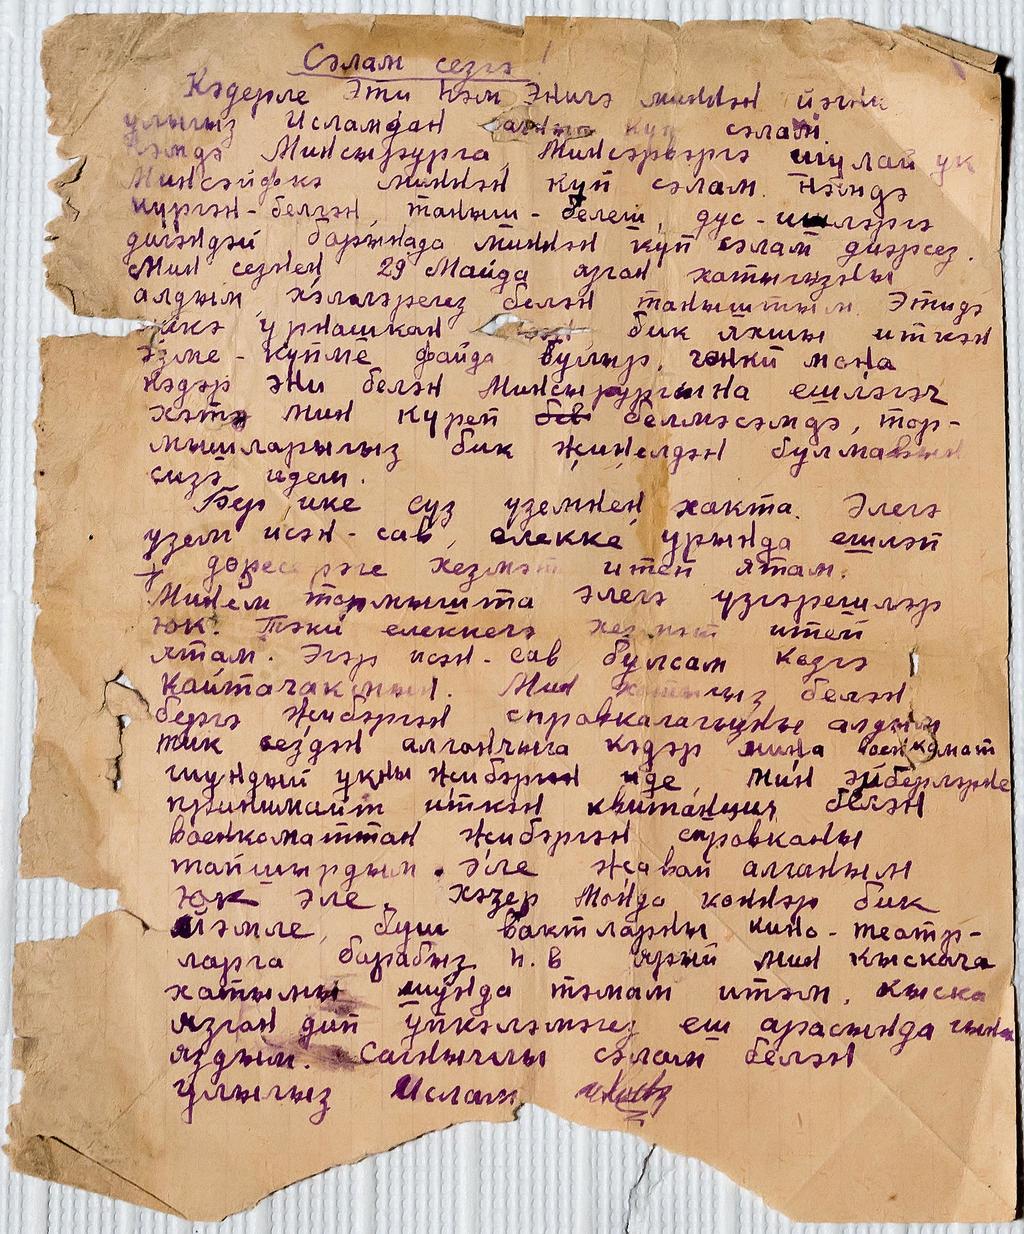 Сэлам сезгэ!
Кэдерле Эти һэм Энигэ миннэн йэгни
улыгыз Исламдан күп сэлам.
һэмдэ Минсырурга, Минсэрвэргэ шулай ук
Минсэйфкэ миннэн күп сэлам. һэмдэ
күргэн-белгэн, таныш-белеш, дус-ишлэргэ
дигэндэй барынада миннэн күп сэлам диэрсез.
Мин сезнен 29 Майда язган хатыгызны
алдым, хэллэрегез белэн таныштым. Этидэ
эшкэ урнашкан бик яхшы иткэн
эзме-күпме файда булыр, чөнки моңа
кэдэр эни белэн Минсырургына ешлэгэч
хэтта мин күреп белмэсэмдэ, тор-
мышларыгыз бик җиңелдэн булмавын
сизэ идем.
Бер ике суз үземнең хакта. Элегэ
үзем исэн-сав, элекке урында ешлэп
хезмэт итеп ятам.
Минем тормышта элегэ үзгэрешлэр
юк. Тэки елеккегэ хезмэт итеп
ятам. Эгэр исэн-сав булсам көзгэ
кайтачакмын. Мин хатыгыз белэн
бергэ җибэргэн справкагызны алдым
тик сездэн алганчыга кэдэр миңа военкомат
шундый укны җибэргэн иде мин эйберлэрне
принимайт иткэн квитанция белэн
военкоматтан җибэргэн справканы
тапшырдым. Эле җавап алганым
юк эле. Хэзер монда көннэр бик
йэмле, буш вактларны кино-театр-
ларга барабыз һ.в Ярый мин кыскача
хатымны шунда тэмам итэм, кыска
язган дип үпкэлэмэгез еш арасында гына
яздым. Сагынычлы сэлам белэн
улыгыз Ислам